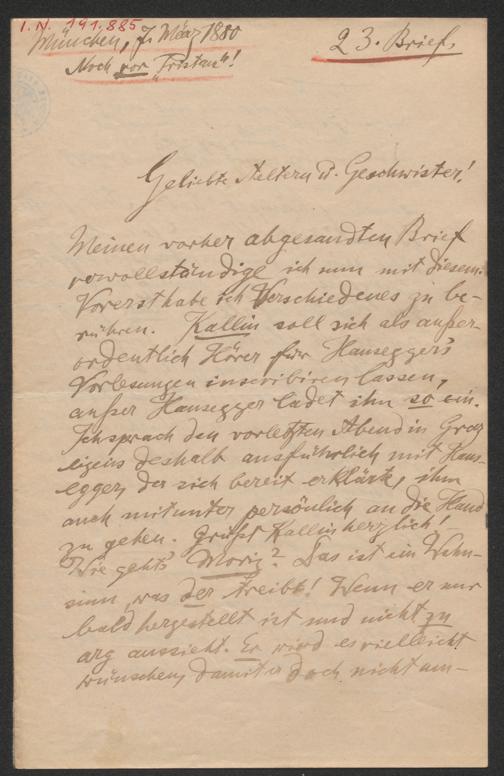 I. N. 191.885
München, 7. März 1880
Noch vor „Tristan"!
23. Brief.
Geliebte Aeltern u. Geschwister!
Meinen vorher abgesandten Brief
vervollständige ich nun mit diesem.
Vorerst habe ich Verschiedenes zu be-
rühren. Kallin soll sich als außer-
ordentlich Hörer für Hausegger's
Vorlesungen inscribiren lassen,
außer Hausegger ladet ihn so ein.
Ich sprach den vorletzten Abend in Graz
eigens deshalb ausführlich mit Haus-
egger, der sich bereit erklärte, ihm
auch mitunter persönlich an die Hand
zu gehen. Grüßt Kallin herzlich!
Wie geht's Moriz? Das ist ein Wahn-
sinn, was der treibt! Wenn er nur
bald hergestellt ist und nicht zu
arg aussieht. Er wird es vielleicht
wünschen, damit er doch nicht um-